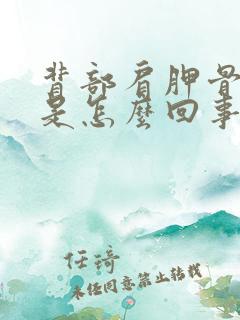 背部肩胛骨
是怎麼回事
任琦
未经同意禁止转载